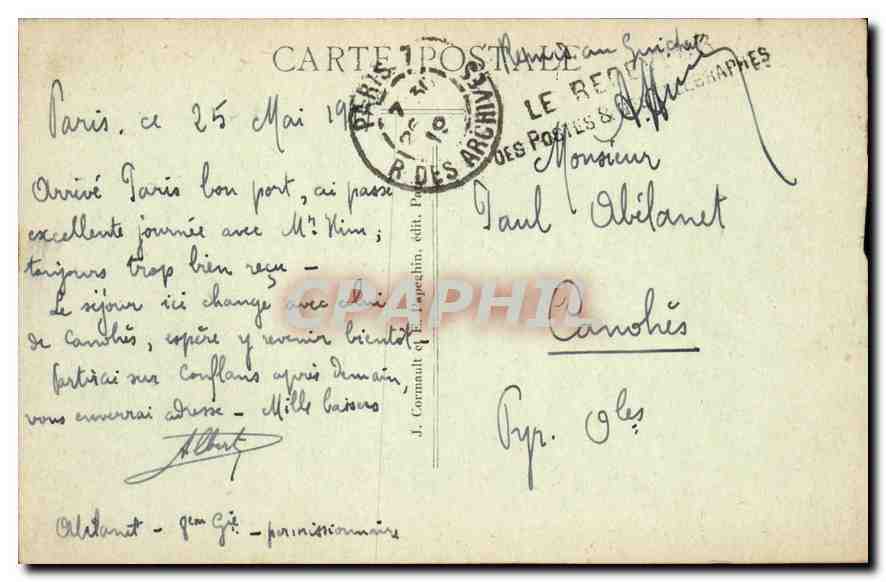 CARTE POSTALE
Remis au Guichet
LE RECEVEUR
DES POSTES & TÉLÉGRAPHES
PARIS
7 30
25
19
R. DES ARCHIVES
Paris, ce 25 Mai 19
Arrivé Paris bon port, ai passé
excellente journée avec Mr Kim;
toujours trop bien reçu –
Le séjour ici change avec celui
de Canohès, espère y revenir bientôt –
Partirai sur Conflans après demain,
vous enverrai adresse – Mille baisers
Albert
Abélanet – 8em Gie – permissionnaire
J. Cormault et E. Papeghin, édit.
Monsieur
Paul Abélanet
Canohès
Pyr. Oles
CPAPHIL